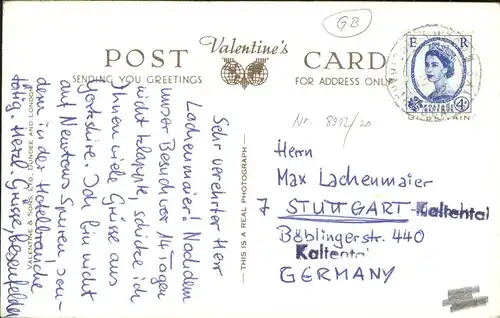 GB
POST
Valentine's
CARD
SENDING YOU GREETINGS
FOR ADDRESS ONLY
E R
POSTAGE
Nr. 8912/20
Sehr verehrter Herr
Lachenmaier! Nachdem
unser Besuch vor 14 Tagen
nicht klappte, schicke ich
Ihnen viele Grüsse aus
Yorkshire. Ich bin nicht
auf Newtons Spuren son-
dern in der Hotelbranche
tätig. Herzl. Grüsse,
VALENTINE & SONS, LTD., DUNDEE AND LONDON
THIS IS A REAL PHOTOGRAPH
Herrn
Max Lachenmaier
7 STUTTGART-Kaltental
Böblingerstr. 440
Kaltental
GERMANY